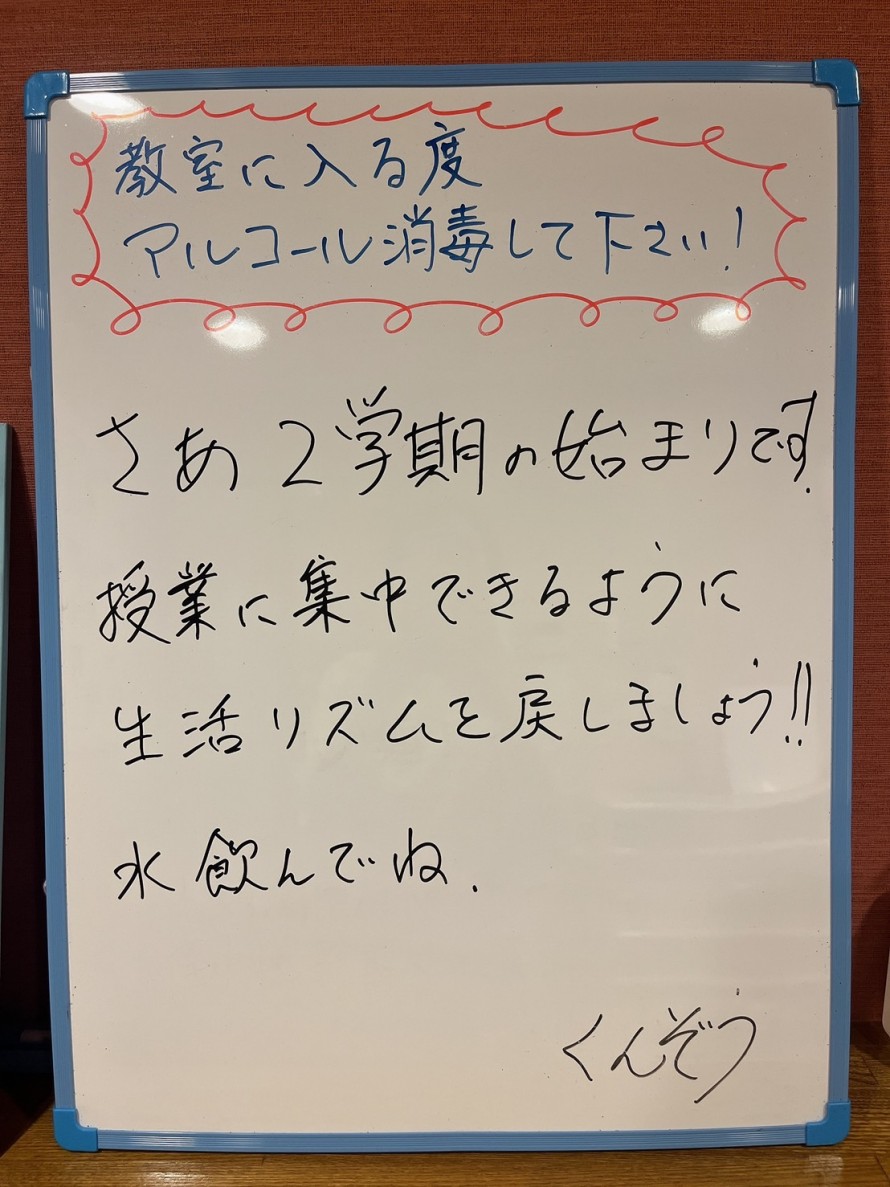 教室に入る度
アルコール消毒して下さい!
さあ2学期の始まりです.
授業に集中できるように
生活リズムを戻しましょう!!
水飲んでね.
くんぞう